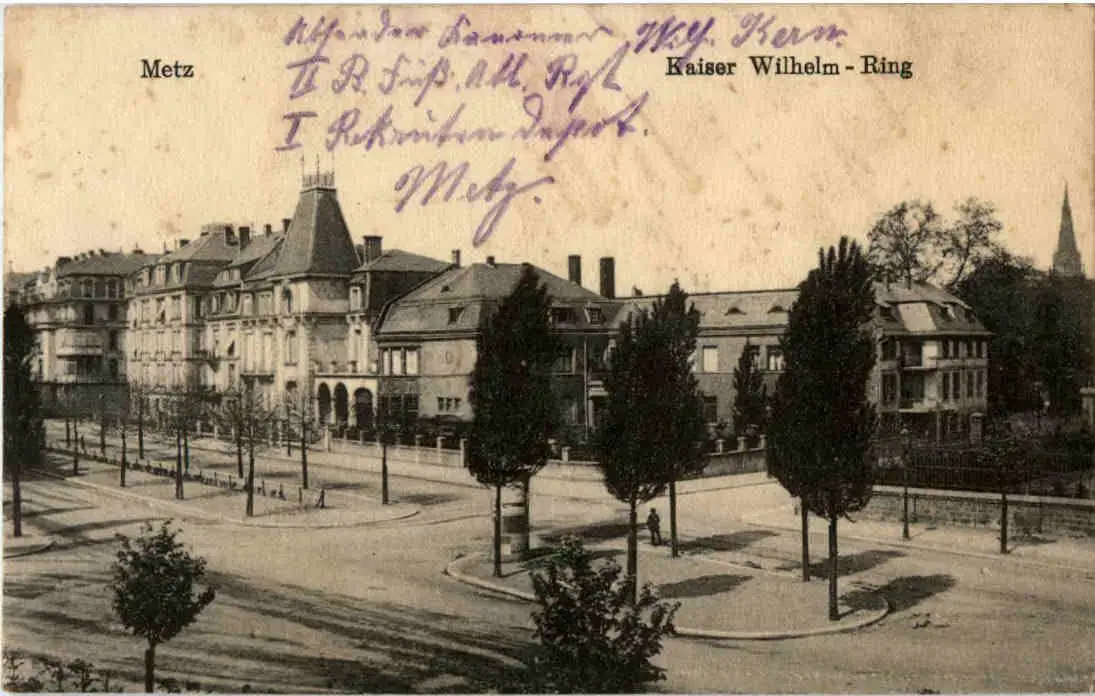 Metz
Kaiser Wilhelm-Ring
Absender Kanonier Wilh. Kern.
II B. Fuß. Art. Rgt
I Rekruten Depot.
Metz.